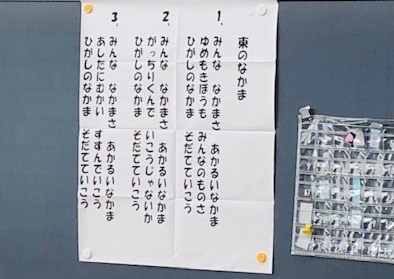 東のなかま
1.
みんな なかまさ あかるいなかま
ゆめもきぼうも みんなのものさ
ひがしのなかま そだてていこう
2.
みんな なかまさ あかるいなかま
がっちりくんで いこうじゃないか
ひがしのなかま そだてていこう
3.
みんな なかまさ あかるいなかま
あしたにむかい すすんでいこう
ひがしのなかま そだてていこう